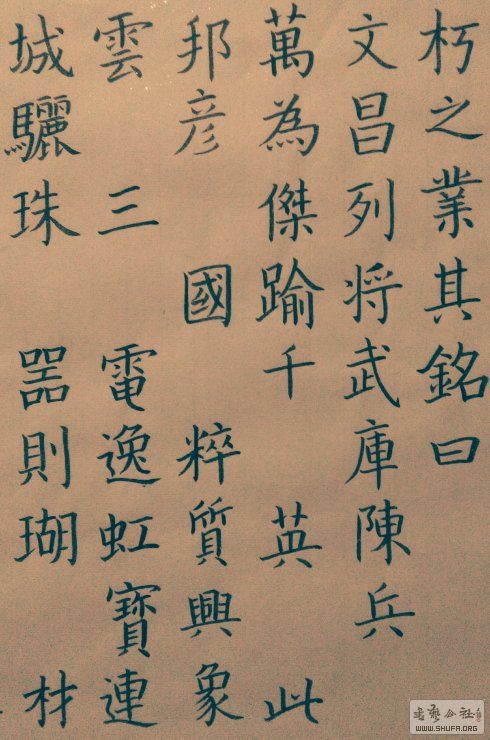 朽之業其銘曰
文昌列将武庫陳兵
萬為傑踰千 英 此
邦彦 國 粹質興象
雲 三 電逸虹寶連
城驪珠 器則瑚 材
WWW.SHUFA.ORG